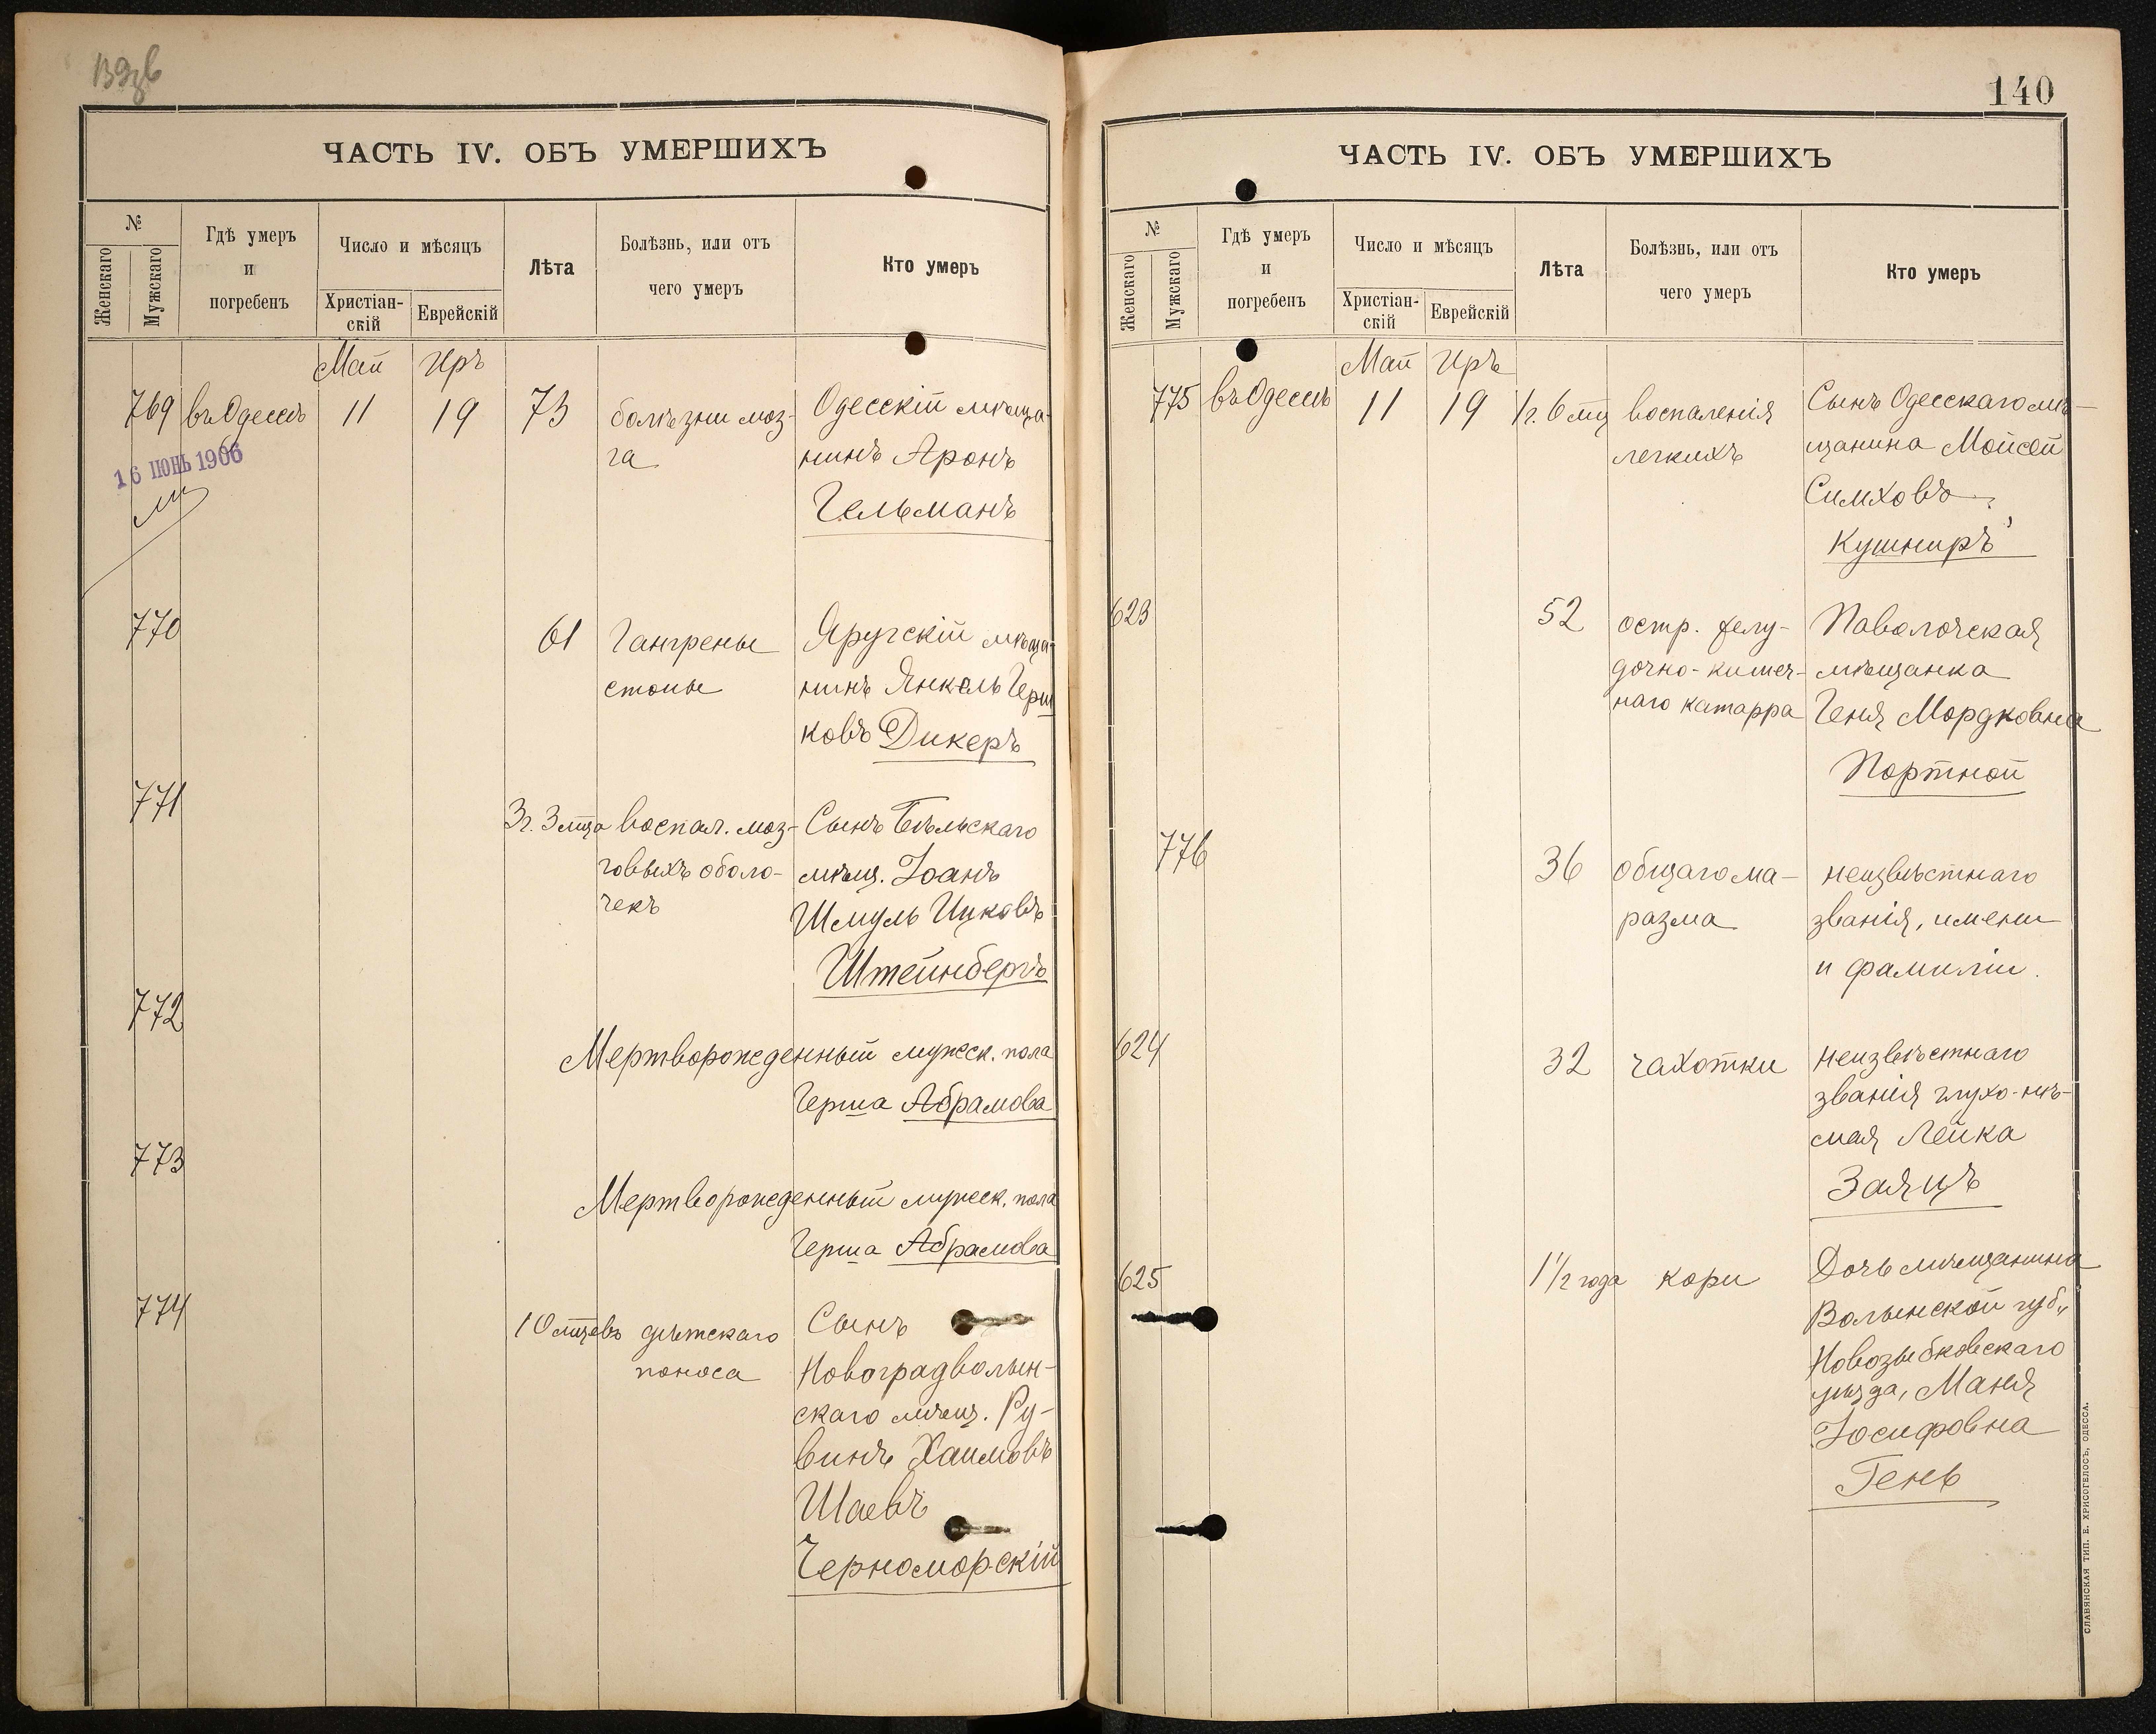 ЧАСТЬ IV. ОБЪ УМЕРШИХЪ
№
Женскаго
Мужскаго
Гдѣ умеръ
и
погребенъ
Число и мѣсяцъ
Христіан-
скій
Еврейскій
Лѣта
Болѣзнь, или отъ
чего умеръ
Кто умеръ
Май Иръ
769 въ Одессѣ 11 19 73 болѣзни моз- Одесскій мѣща-
16 ІЮНЬ 1906
га нинъ Аронъ
Гельманъ
770 61 Гангрены Яругскій мѣща-
стопы нинъ Янкель Герш
ковъ Дикеръ
771 3г. 3 мца воспал. моз- Сынъ Бѣльскаго
говыхъ оболо- мѣщ. Іоанъ
чекъ Шмуль Ицковъ
Штейнбергъ
772
Мертворожденный мужск. пола
Герша Абрамова
773
Мертворожденный мужск. пола
Герша Абрамова
774 10 мцевъ дѣтскаго Сынъ
поноса Новоградволын-
скаго мѣщ. Ру-
винъ Хаимовъ
Шаевъ
Черноморскій
140
ЧАСТЬ IV. ОБЪ УМЕРШИХЪ
№
Женскаго
Мужскаго
Гдѣ умеръ
и
погребенъ
Число и мѣсяцъ
Христіан-
скій
Еврейскій
Лѣта
Болѣзнь, или отъ
чего умеръ
Кто умеръ
Май Иръ
775 въ Одессѣ 11 19 1г. 6 мц воспаленія Сынъ Одесскаго мѣ-
легкихъ щанина Мойсей
Симховъ
Кушниръ
623 52 остр. желу- Паволочская
дочно-кишеч- мѣщанка
наго катарра Геня Мордковна
Портной
776 36 общаго ма- неизвѣстнаго
разма званія, имени
и фамиліи.
624 32 чахотки неизвѣстнаго
званія глухо-нѣ-
мая Лейка
Заяцъ
625 1 1/2 года кори Дочь мѣщанина
Волынской губ.,
Новозыбковскаго
уѣзда, Маня
Іосифовна
Генъ
СЛАВЯНСКАЯ ТИП. Е. ХРИСОГЕЛОСЪ, ОДЕССА.